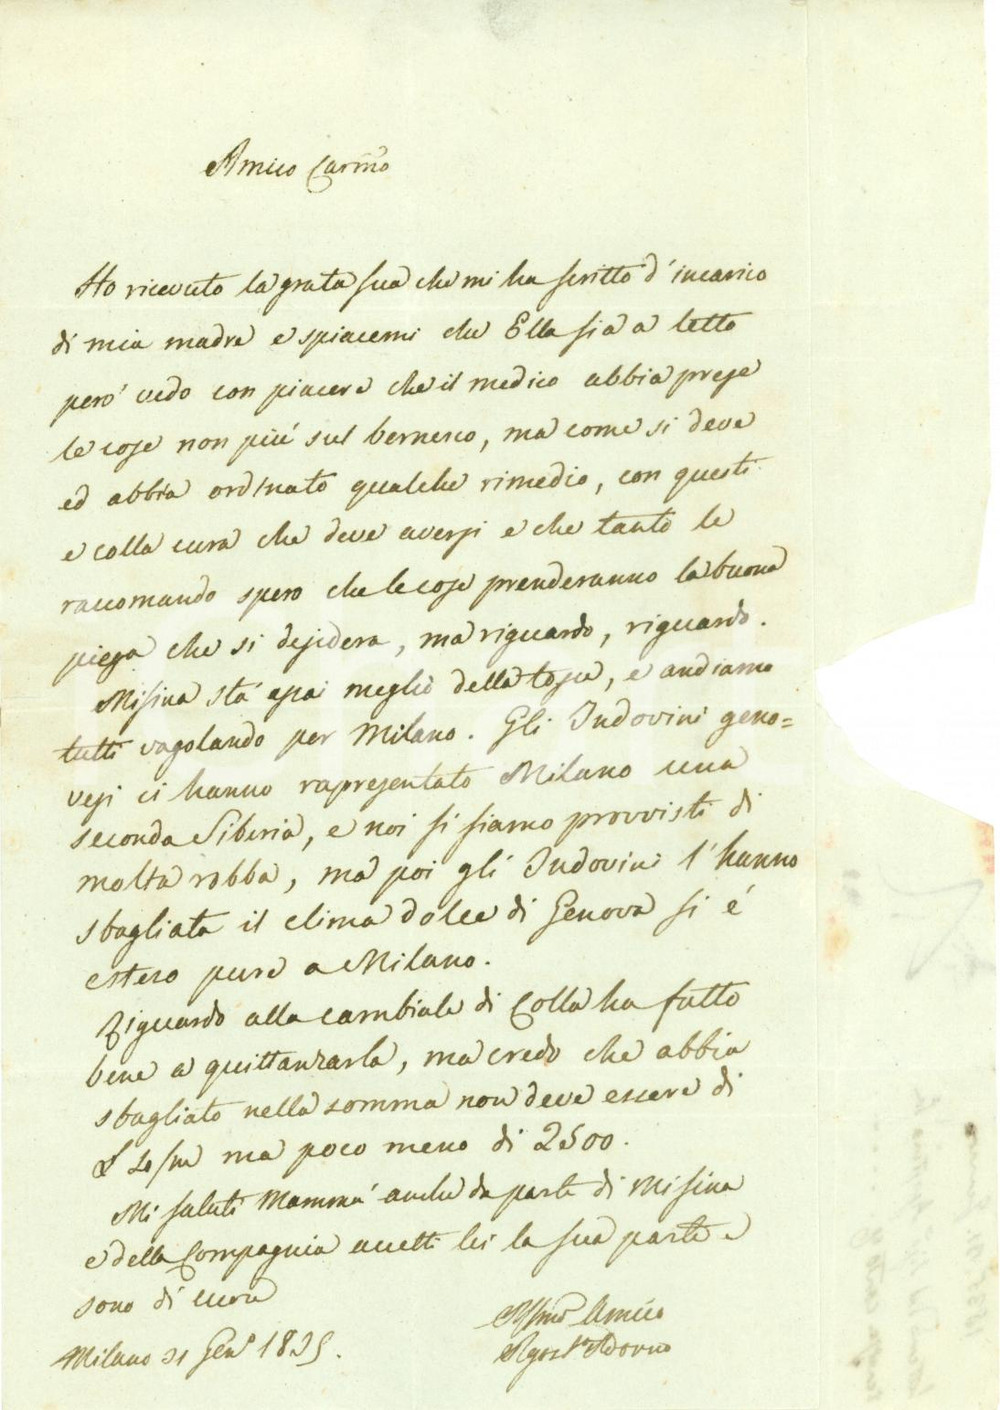 Amico Carmo
Ho ricevuto la grata sua che mi ha scritto d'incarico
di mia madre e spiacemi che Ella sia a letto
però vedo con piacere che il medico abbia prese
le cose non più sul bernesco, ma come si deve
ed abbia ordinato qualche rimedio, con questi
e colla cura che deve aversi e che tanto le
raccomando spero che le cose prenderanno la buona
piega che si desidera, ma riguardo, riguardo.
Misina stà assai meglio della tosse, e andiamo
tutti vagolando per Milano. Gli Indovini geno=
vesi ci hanno rapresentato Milano una
seconda Siberia, e noi si siamo provvisti di
molta robba, ma poi gli Indovini l'hanno
sbagliata il clima dolce di Genova si é
esteso pure a Milano.
Riguardo alla cambiale di Colla ha fatto
bene a quittanzarla, ma credo che abbia
sbagliato nella somma non deve essere di
£ 10/m ma poco meno di 2500.
Mi saluti Mammá anche da parte di Misina
e della Compagnia accetti lei la sua parte e
sono di cuore
Affmo Amico
Milano 21 Gen.o 1835.
Agost.o Adorno